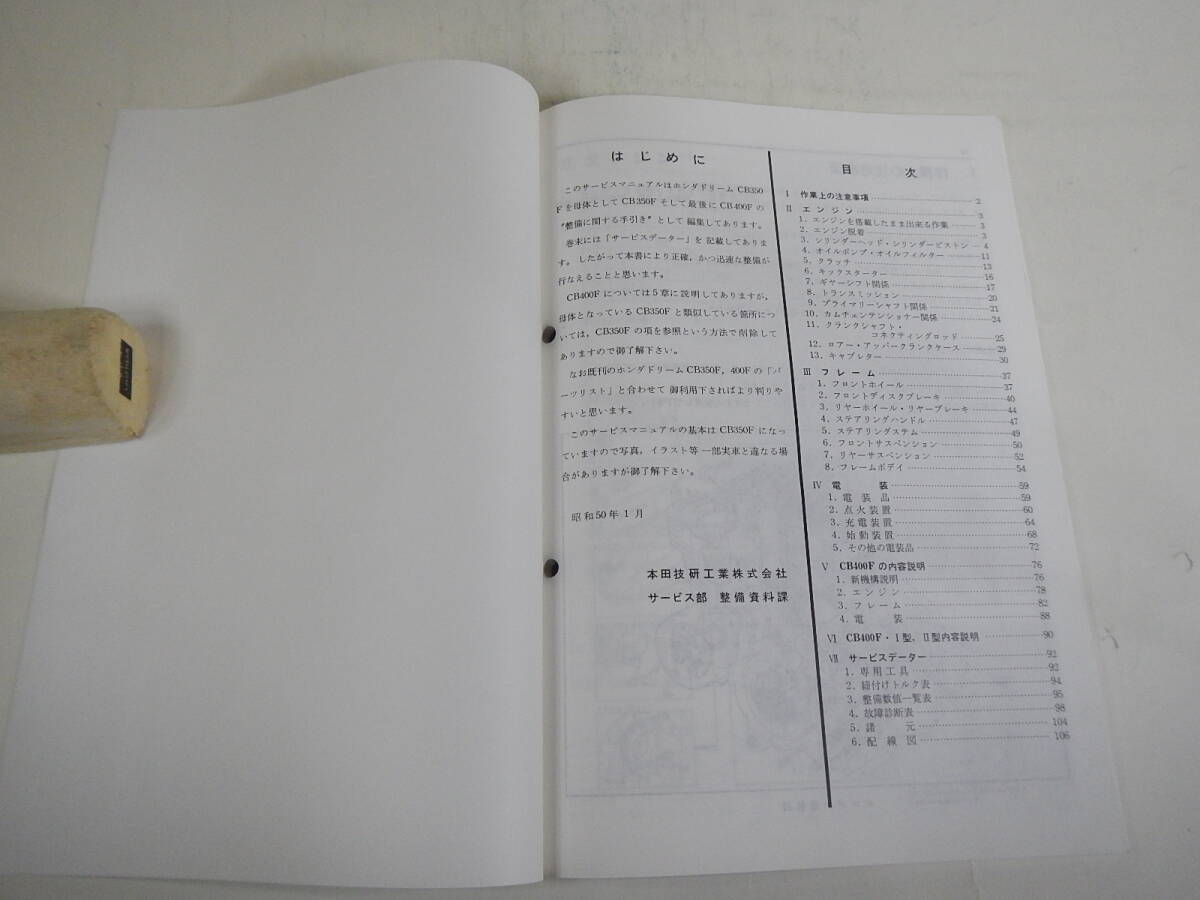 はじめに
このサービスマニュアルはホンダドリームCB350
Fを母体としてCB350Fそして最後にCB400Fの
"整備に関する手引き"として編集してあります。
巻末には「サービスデーター」を記載してありま
す。したがって本書により正確，かつ迅速な整備が
行なえることと思います。
CB400Fについては5章に説明してありますが，
母体となっているCB350Fと類似している箇所につ
いては，CB350Fの項を参照という方法で削除して
ありますので御了解下さい。
なお既刊のホンダドリームCB350F，400Fの「パ
ーツリスト」と合わせて御利用下さればより判りや
すいと思います。
このサービスマニュアルの基本はCB350Fになっ
ていますので写真，イラスト等一部実車と違なる場
合がありますが御了解下さい。
昭和50年1月
本田技研工業株式会社
サービス部 整備資料課
目 次
Ⅰ 作業上の注意事項 2
Ⅱ エンジン 3
1．エンジンを搭載したまま出来る作業 3
2．エンジン脱着 3
3．シリンダーヘッド・シリンダーピストン 4
4．オイルポンプ・オイルフィルター 11
5．クラッチ 13
6．キックスターター 16
7．ギヤーシフト関係 17
8．トランスミッション 20
9．プライマリーシャフト関係 21
10．カムチェンテンショナー関係 24
11．クランクシャフト・
コネクティングロッド 25
12．ロアー・アッパークランクケース 29
13．キャブレター 30
Ⅲ フレーム 37
1．フロントホイール 37
2．フロントディスクブレーキ 40
3．リヤーホイール・リヤーブレーキ 44
4．ステアリングハンドル 47
5．ステアリングステム 49
6．フロントサスペンション 50
7．リヤーサスペンション 52
8．フレームボデイ 54
Ⅳ 電 装 59
1．電装品 59
2．点火装置 60
3．充電装置 64
4．始動装置 68
5．その他の電装品 72
Ⅴ CB400Fの内容説明 76
1．新機構説明 76
2．エンジン 78
3．フレーム 82
4．電 装 88
Ⅵ CB400F・Ⅰ型，Ⅱ型内容説明 90
Ⅶ サービスデーター 92
1．専用工具 92
2．締付けトルク表 94
3．整備数値一覧表 95
4．故障診断表 98
5．諸 元 104
6．配線図 106